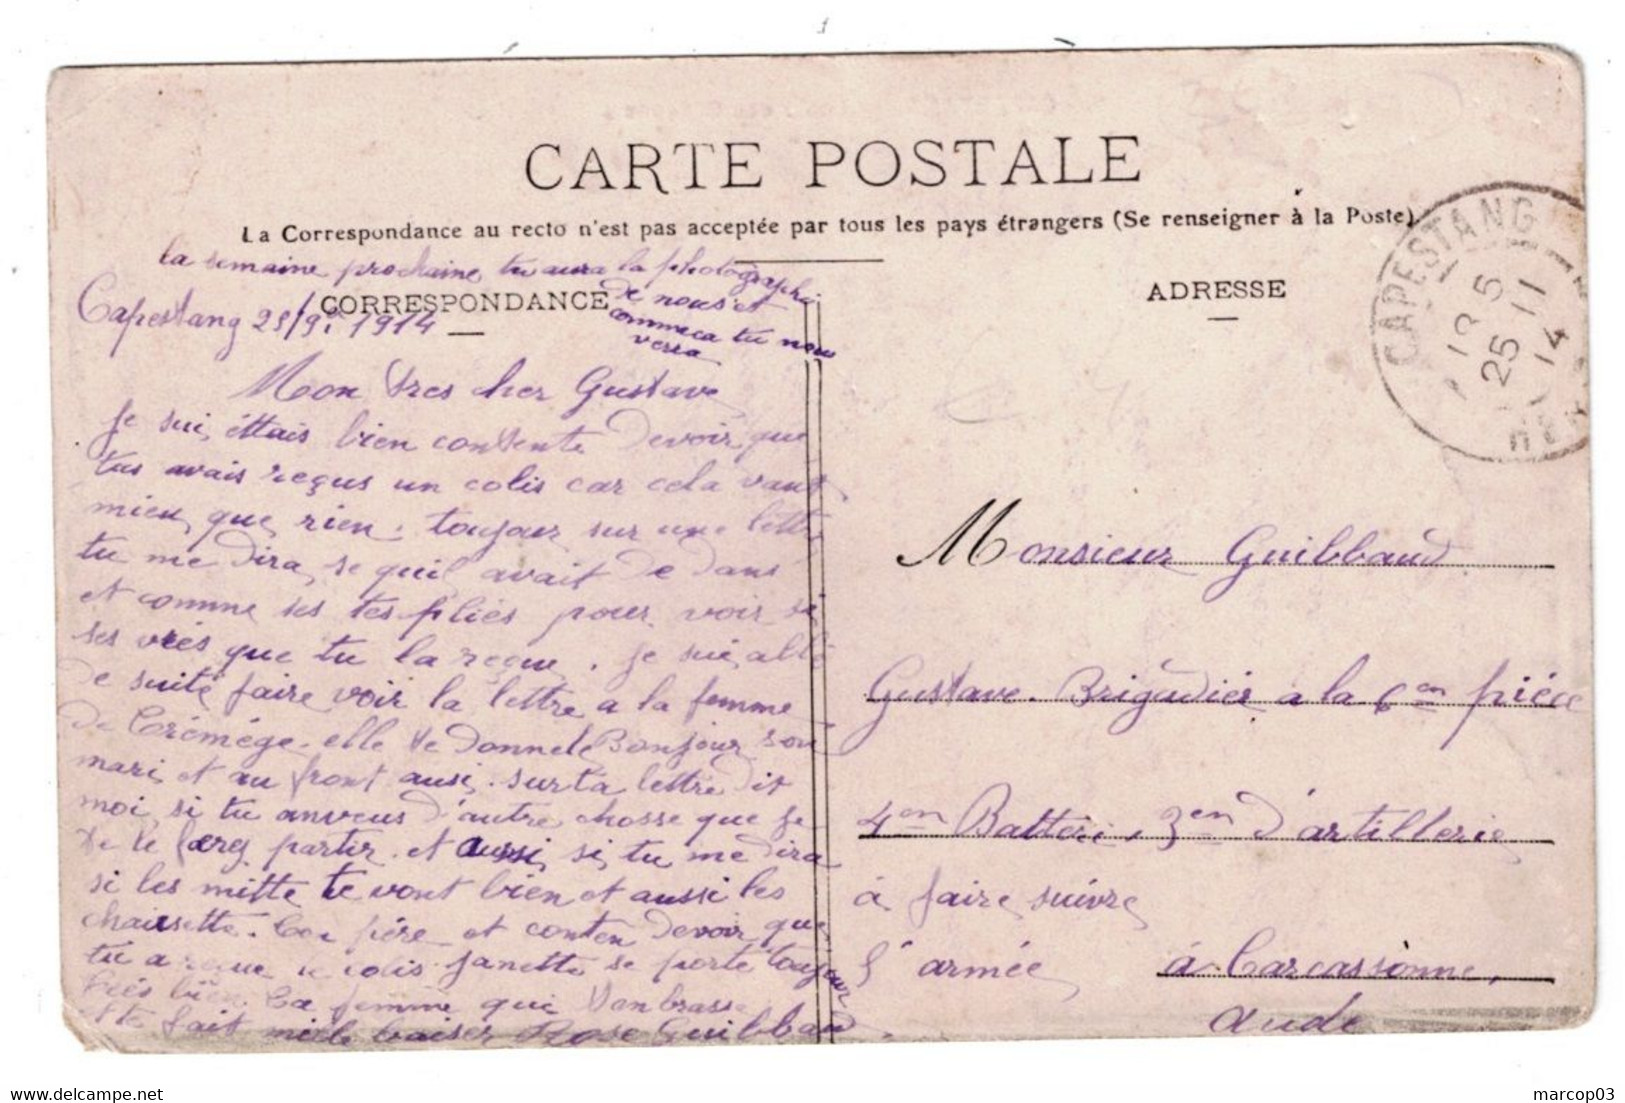 CARTE POSTALE
La Correspondance au recto n'est pas acceptée par tous les pays étrangers (Se renseigner à la Poste).
la semaine prochaine tu aura la photographie
de nous et
comme ca tu nous
verra
CORRESPONDANCE
Capestang 25/9 1914
Mon tres cher Gustave
Je sui éttais bien contente de voir que
tus avais reçus un colis car cela vaut
mieu que rien. toujour sur une lettre
tu me dira se quil avait de dans
et comme ses tes pliés pour voir si
ses vrés que tu la reçue. Je sui allé
de suite faire voir la lettre a la femme
de Crémége. elle te donne le Bonjour son
mari et au front ausi. sur ta lettre dit
moi si tu anveus d'autre chosse que je
te le ferez partir. et aussi si tu me dira
si les mitte te vont bien et aussi les
chaussette. ton pére et conten de voir que
tu a reçue le colis. Janette se porte toujour
trés bien. ta femme qui t'anbrasse
et te fait mille baiser Rose Guibbaud
ADRESSE
CAPESTANG
25 11
14
Monsieur Guibbaud
Gustave. Brigadiér a la 6en piéce
4en Batterie, 3en d'artillerie
à faire suivre
l'armée à Carcassonne,
Aude
marcop03